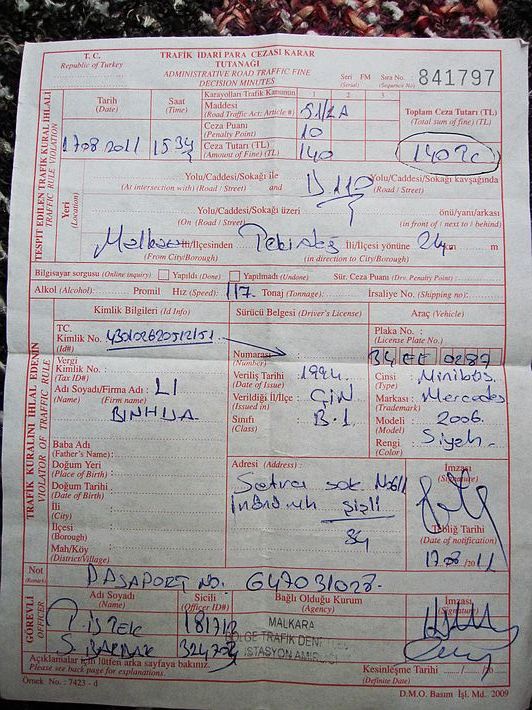 T. C.
Republic of Turkey
TRAFİK İDARİ PARA CEZASI KARAR
TUTANAĞI
ADMINISTRATIVE ROAD TRAFFIC FINE
DECISION MINUTES
Seri FM Sıra No.
(Serial) (Sequence No) 841797
TESPİT EDİLEN TRAFİK KURAL İHLALİ
TRAFFIC RULE VIOLATION
Tarih
(Date)
Saat
(Time)
Karayolları Trafik Kanunun 1 2 3
Maddesi
(Road Traffic Act: Article #) 51/2A
Ceza Puanı
(Penalty Point) 10
Ceza Tutarı (TL)
(Amount of Fine) (TL) 140
Toplam Ceza Tutarı (TL)
(Total sum of fine) (TL)
140
17.08 2011 15 34
Yeri
(Location)
Yolu/Caddesi/Sokağı ile D 110 Yolu/Caddesi/Sokağı kavşağında
(At intersection with) (Road / Street) (Road / Street)
Yolu/Caddesi/Sokağı üzeri önü/yanı/arkası
(On) (Road / Street) (in front of / next to / behind)
Malkara İl/İlçesinden Tekirdağ İl/İlçesi yönüne m
(From City/Borough) (in direction of City/Borough) m
Bilgisayar sorgusu (Online inquiry) Yapıldı (Done) Yapılmadı (Undone) Sür. Ceza Puanı (Drv. Penalty Point)
Alkol (Alcohol) Promil Hız (Speed) 117 Tonaj (Tonnage) İrsaliye No. (Shipping no)
TRAFİK KURALINI İHLAL EDENİN
VIOLATOR OF TRAFFIC RULE
Kimlik Bilgileri (Id Info)
Sürücü Belgesi (Driver's License)
Araç (Vehicle)
TC.
Kimlik No.
(Id#)
Vergi
Kimlik No. :
(Tax ID#)
Adı Soyadı/Firma Adı : LI
(Name) (Firm name)
BINHUA
Baba Adı
(Father's Name) :
Doğum Yeri
(Place of Birth) :
Doğum Tarihi
(Date of Birth) :
İli
(City) :
İlçesi
(Borough) :
Mah/Köy
(District/Village) :
Numarası
(Number) :
Veriliş Tarihi : 1994
(Date of Issue)
Verildiği İl/İlçe : ÇİN
(Issued in)
Sınıfı : B.1
(Class)
Plaka No. :
(License Plate No.)
34 EE 0287
Cinsi : Minibüs
(Type)
Markası : Mercedes
(Trademark)
Modeli : 2006
(Model)
Rengi : Siyah
(Color)
Adresi (Address) :
Şişli
İmzası
(Signature)
Tebliğ Tarihi
(Date of notification)
17.08 /2011
Not
(Remark)
PASAPORT NO. G47031028
GÖREVLİ
OFFICER
Adı Soyadı
(Name)
Sicili
(Officer ID#)
Bağlı Olduğu Kurum
(Agency)
İmzası
(Signature)
MALKARA
BÖLGE TRAFİK DENT
İSTASYON AMİRLİĞİ
Açıklamalar için lütfen arka sayfaya bakınız.
Please see back page for explanations.
Kesinleşme Tarihi
(Definite Date)
Örnek No. : 7423 - d
D.M.O. Basım İşl. Md. 2009